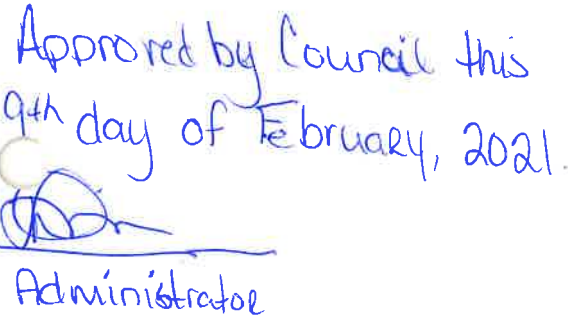 Approved by Council this
9th day of February, 2021.
Administrator